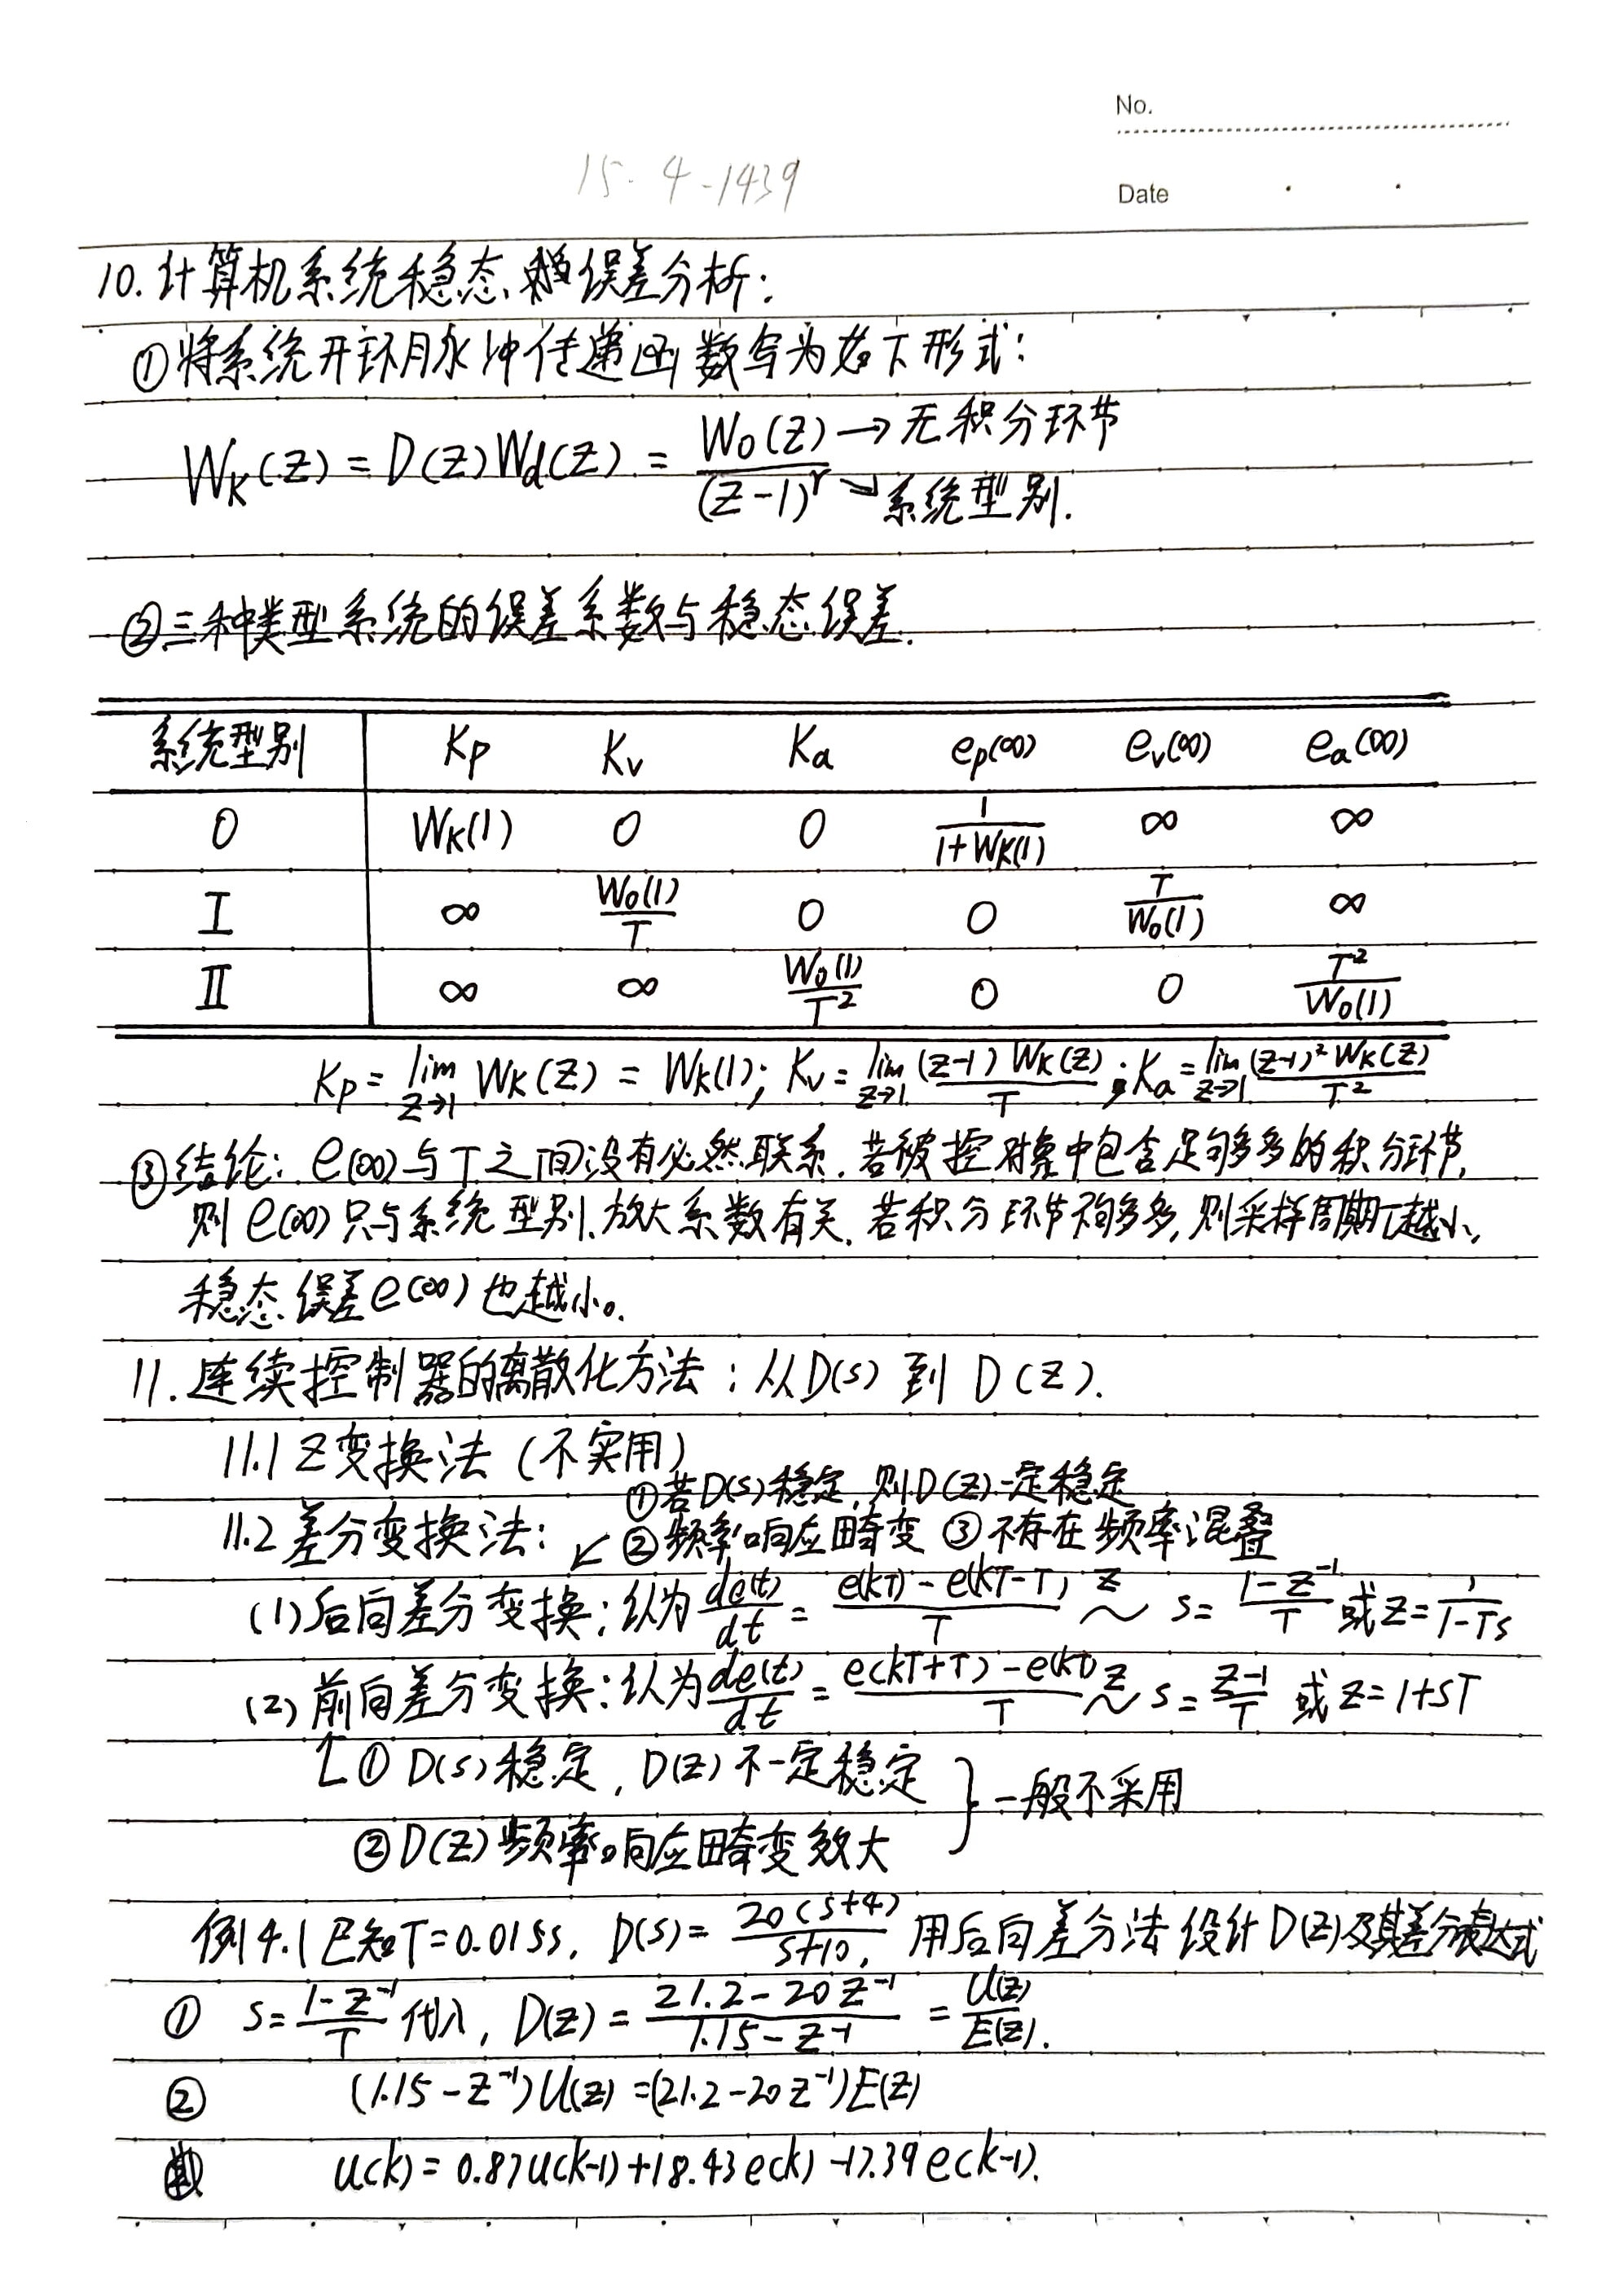 No.
15-4-1439
Date
10.计算机系统稳态误差分析:
①将系统开环脉冲传递函数写为如下形式:
W_K(z) = D(z)W_d(z) = W_0(z)/(z-1)^r →无积分环节
→系统型别.
②三种类型系统的误差系数与稳态误差.
系统型别 K_p K_v K_a e_p(∞) e_v(∞) e_a(∞)
0 W_K(1) 0 0 1/(1+W_K(1)) ∞ ∞
I ∞ W_0(1)/T 0 0 T/W_0(1) ∞
II ∞ ∞ W_0(1)/T² 0 0 T²/W_0(1)
K_p = lim_{z→1} W_K(z) = W_K(1); K_v = lim_{z→1} (z-1)W_K(z)/T; K_a = lim_{z→1} (z-1)²W_K(z)/T²
③结论: e(∞)与T之间没有必然联系. 若被控对象中包含足够多的积分环节,
则e(∞)只与系统型别、放大系数有关. 若积分环节不够多, 则采样周期T越小,
稳态误差e(∞)也越小。
11.连续控制器的离散化方法:从D(s)到D(z).
11.1 Z变换法(不实用)
①若D(s)稳定,则D(z)一定稳定
11.2 差分变换法: ↙ ②频率响应畸变 ③不存在频率混叠
(1)后向差分变换:认为 de(t)/dt = (e(kT)-e(kT-T))/T z~ s = (1-z⁻¹)/T 或 z = 1/(1-Ts)
(2)前向差分变换:认为 de(t)/dt = (e(kT+T)-e(kT))/T z~ s = (z-1)/T 或 z = 1+sT
↑①D(s)稳定,D(z)不一定稳定 } 一般不采用
②D(z)频率响应畸变较大
例4.1 已知T=0.015s, D(s) = 20(s+4)/(s+10), 用后向差分法设计D(z)及其差分表达式
① s = (1-z⁻¹)/T 代入, D(z) = (21.2-20z⁻¹)/(1.15-z⁻¹) = U(z)/E(z).
② (1.15-z⁻¹)U(z) = (21.2-20z⁻¹)E(z)
u(k) = 0.87u(k-1)+18.43e(k)-17.39e(k-1).